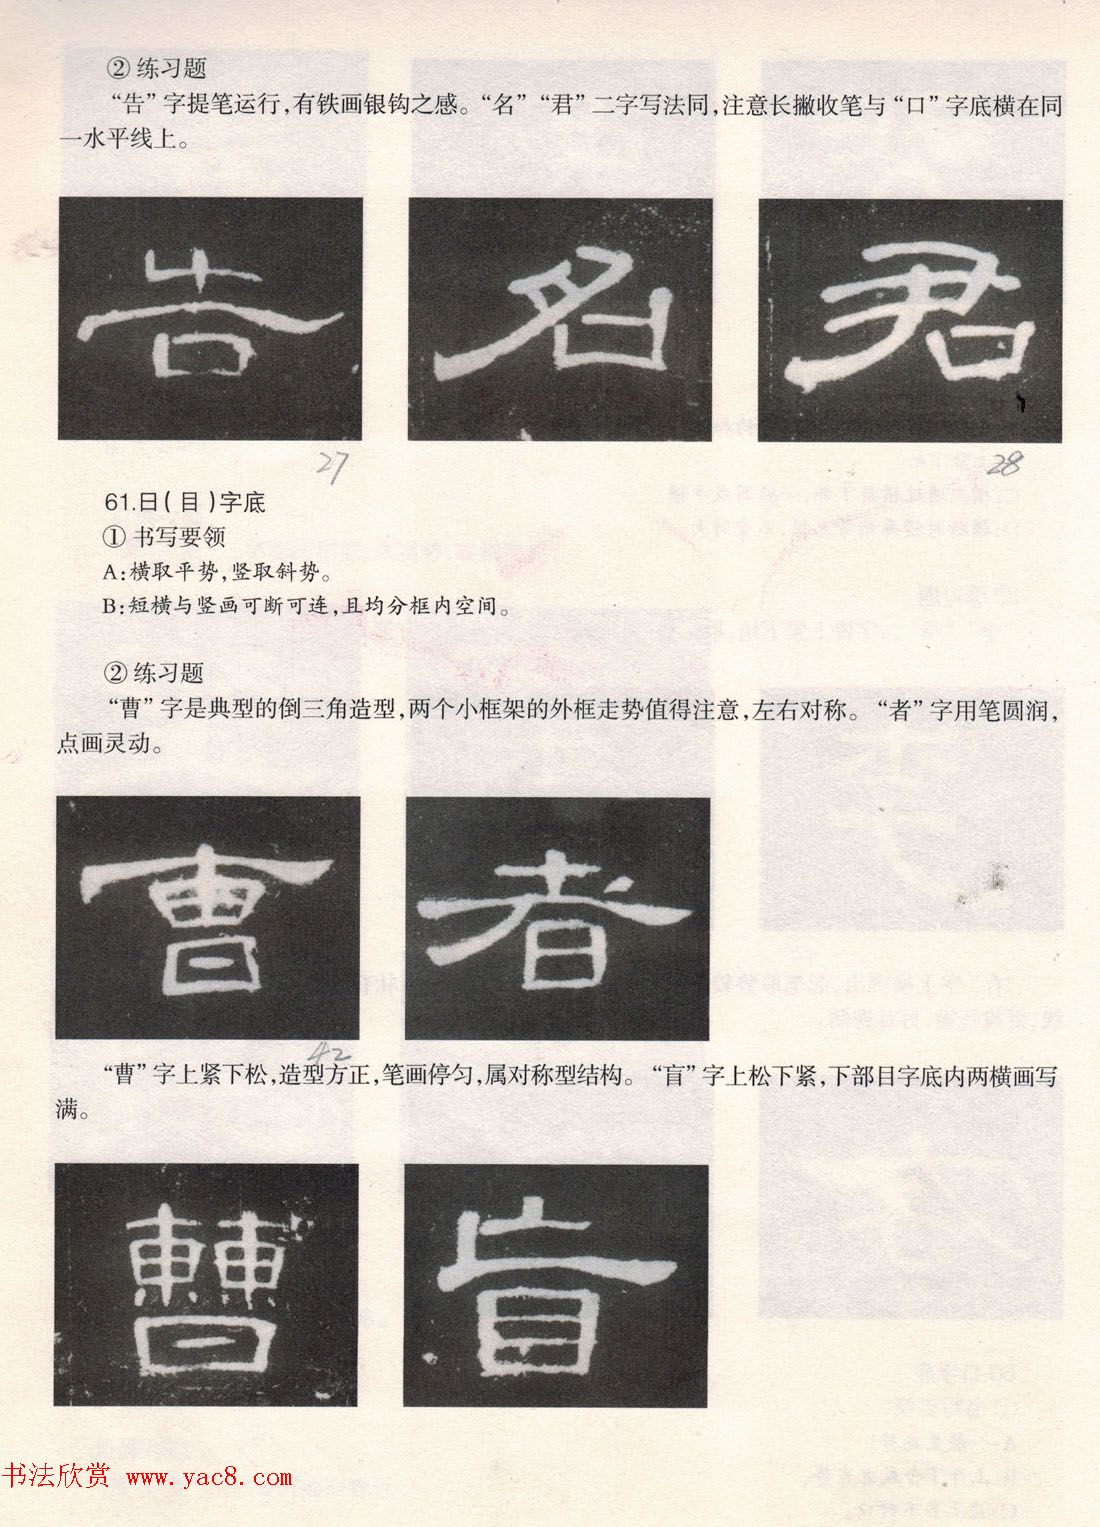 ② 练习题
“告”字提笔运行，有铁画银钩之感。“名”“君”二字写法同，注意长撇收笔与“口”字底横在同
一水平线上。
告 名 君
27 28
61.日(目)字底
① 书写要领
A:横取平势，竖取斜势。
B:短横与竖画可断可连，且均分框内空间。
② 练习题
“曹”字是典型的倒三角造型，两个小框架的外框走势值得注意，左右对称。“者”字用笔圆润，
点画灵动。
曹 者
42
“曹”字上紧下松，造型方正，笔画停匀，属对称型结构。“盲”字上松下紧，下部目字底内两横画写
满。
曹 盲
书法欣赏 www.yac8.com